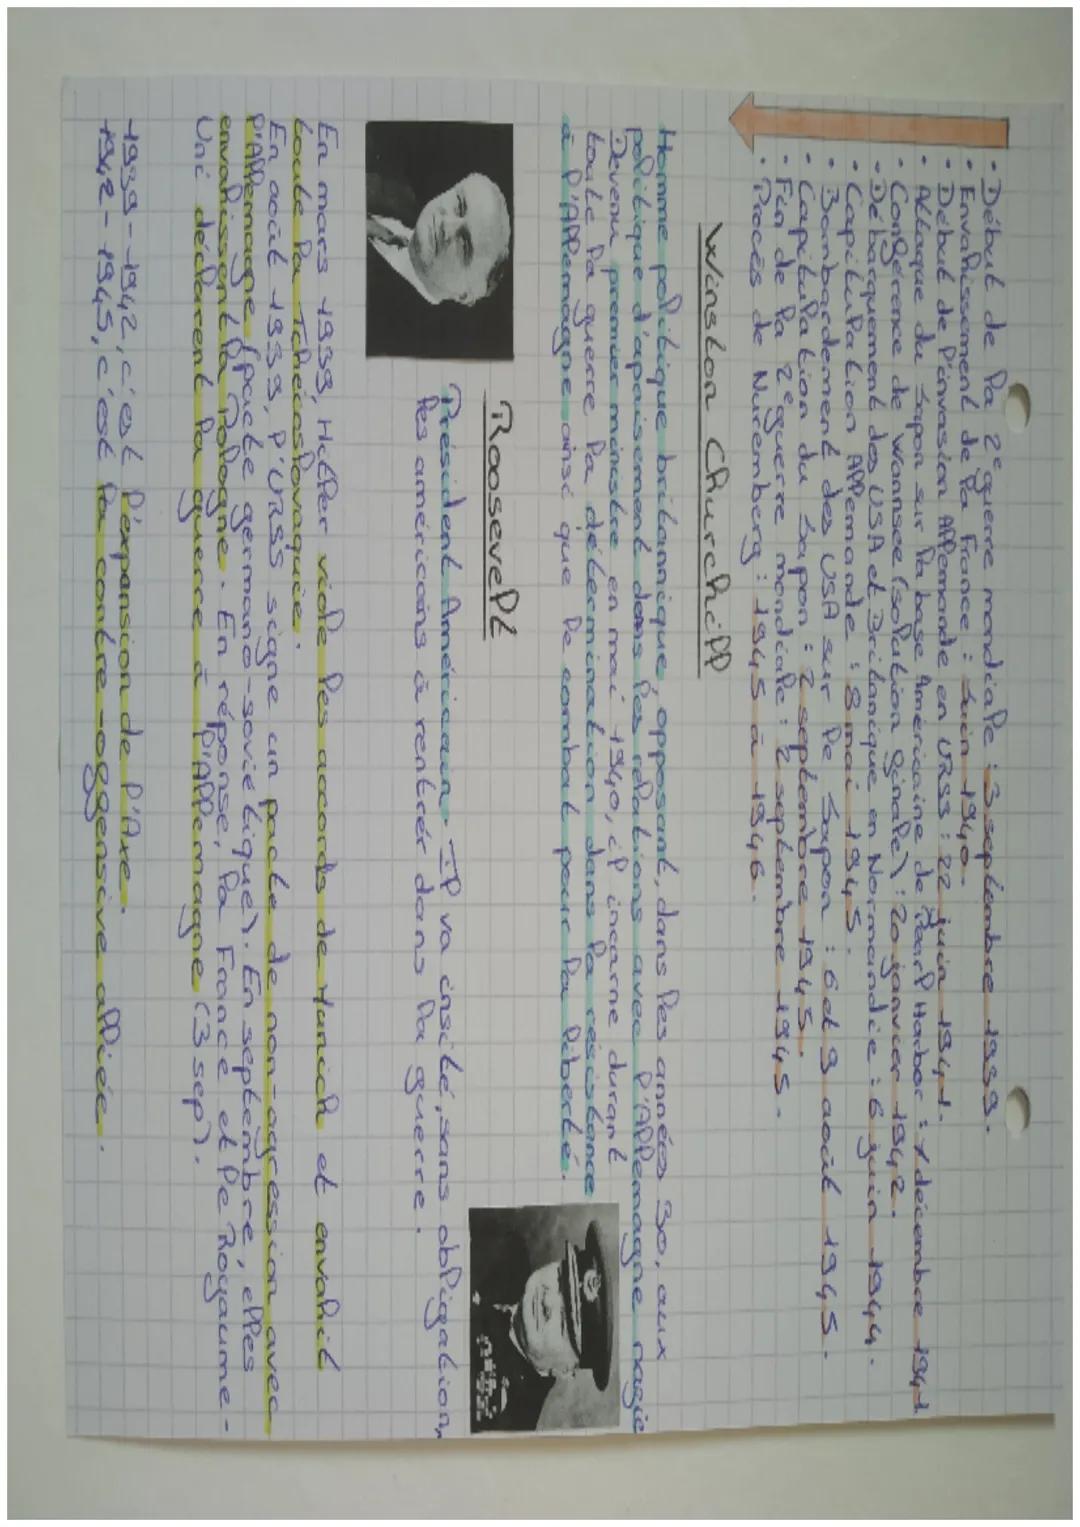 • Début de la 2e guerre mondiale : 3 septembre 1939.
• Envahissement de la France : Juin 1940.
• Début de l'invasion Allemande en URSS : 22 juin 1941.
• Attaque du Japon sur la base Américaine de Pearl Harbor : 7 décembre 1941
• Conférence de Wannsee (solution finale) : 20 janvier 1942.
• Débarquement des USA et Britanique en Normandie : 6 juin 1944.
• Capitulation Allemande : 8 mai 1945.
• Bombardement des USA sur le Japon : 6 et 9 août 1945.
• Capitulation du Japon : 2 septembre 1945.
• Fin de la 2e guerre mondiale : 2 septembre 1945.
• Procès de Nuremberg : 1945 à 1946.
Winston Churchill
Homme politique britannique, opposant, dans les années 30, aux
politique d'apaisement dans les relations avec l'Allemagne nazie
Devenu premier ministre en mai 1940, il incarne durant
toute la guerre la détermination dans la résistance
à l'Allemagne ainsi que le combat pour la liberté.
Roosevelt
Président Américain. Il va incité, sans obligation,
les américains à rentrer dans la guerre.
En mars 1939, Hitler viole les accords de Munich et envahit
toute la Tchécoslovaquie.
En août 1939, l'URSS signe un pacte de non-agression avec
l'Allemagne (pacte germano-soviétique). En septembre, elles
envahissent la Pologne. En réponse, la France et le Royaume-
Uni déclarent la guerre à l'Allemagne (3 sep).
1939-1942, c'est l'expansion de l'Axe.
1942-1945, c'est la contre-offensive alliée.